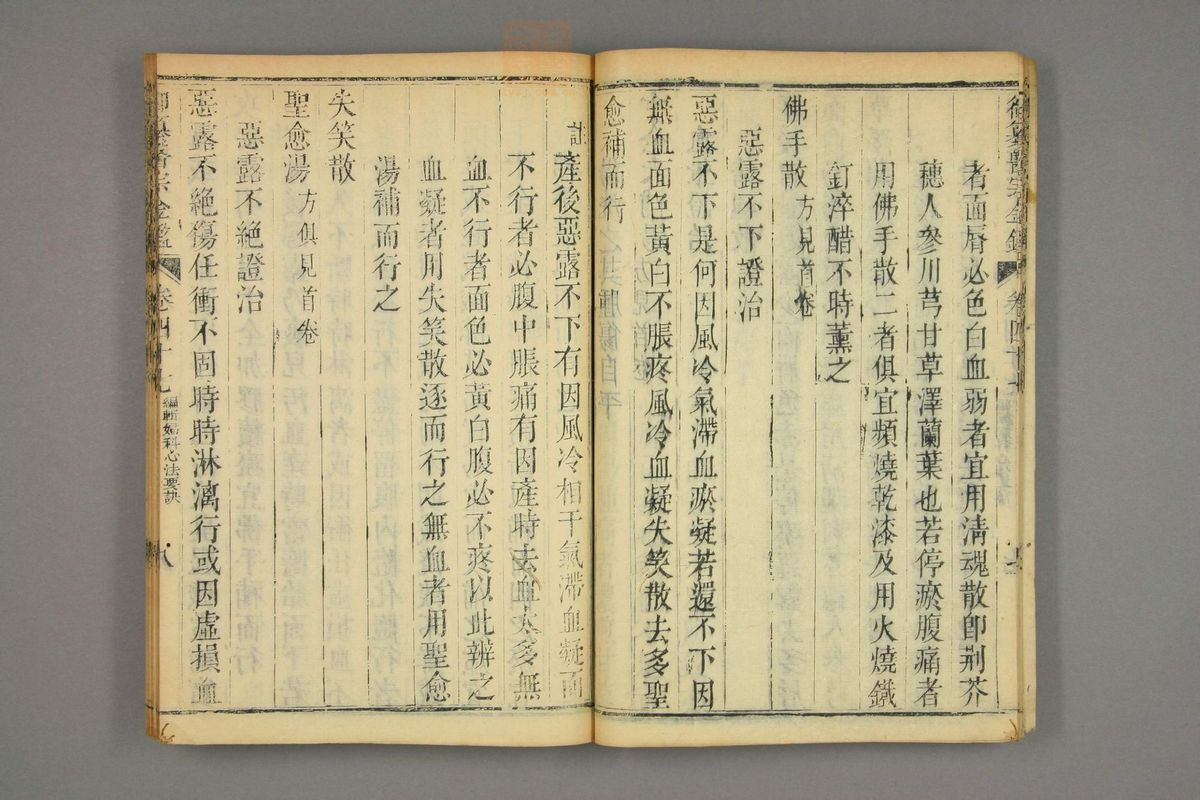 御纂醫宗金鑑 卷四十七
者面脣必色白血弱者宜用淸魂散卽荆芥
穗人參川芎甘草澤蘭葉也若停瘀腹痛者
用佛手散二者俱宜頻燒乾漆及用火燒鐵
釘淬醋不時薰之
佛手散 方見首卷
惡露不下證治
惡露不下是何因風冷氣滯血瘀凝若還不下因
無血面色黃白不脹疼風冷血凝失笑散去多聖
愈補而行
註 產後惡露不下有因風冷相干氣滯血凝而
不行者必腹中脹痛有因產時去血太多無
血不行者面色必黃白腹必不疼以此辨之
血凝者用失笑散逐而行之無血者用聖愈
湯補而行之
失笑散
聖愈湯 方俱見首卷
惡露不絕證治
惡露不絕傷任衝不固時時淋漓行或因虛損血
御纂醫宗金鑑 卷四十七 編輯婦科心法要訣 八